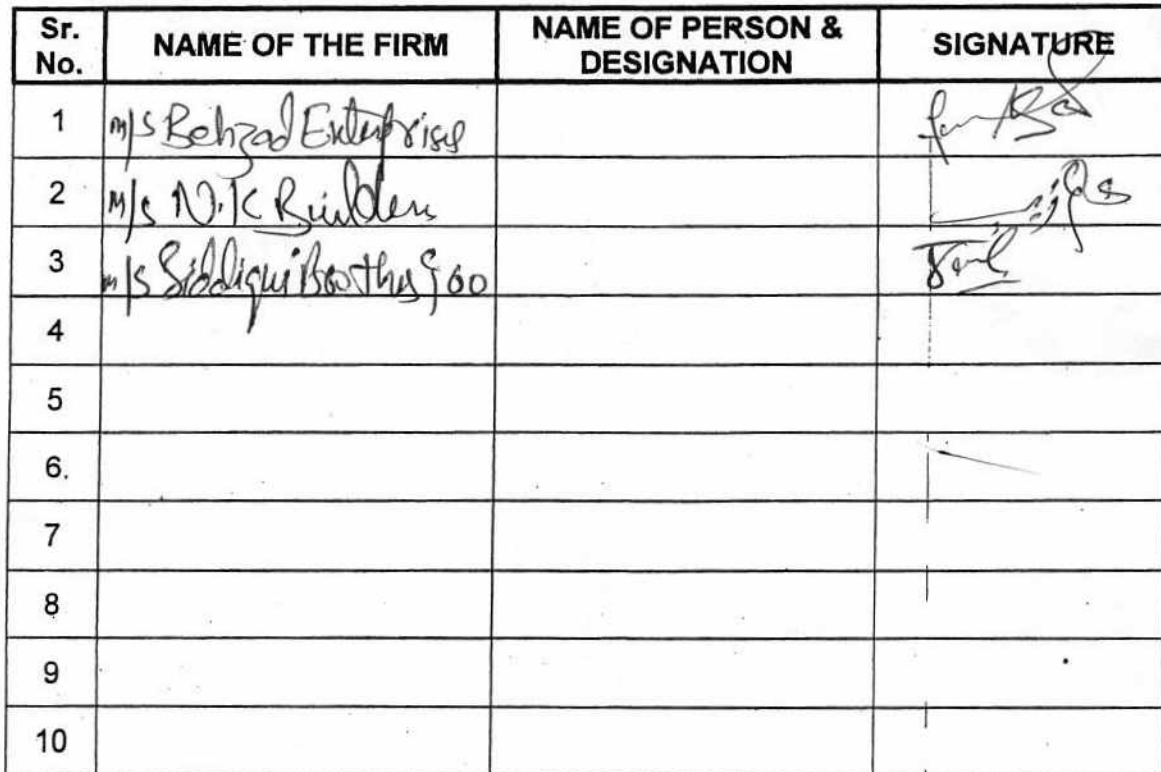 Sr. No. NAME OF THE FIRM NAME OF PERSON & DESIGNATION SIGNATURE
1 M/S Behzad Enterprises
2 M/S N.K Builders
3 M/S Siddiqui Brothers & co
4
5
6.
7
8
9
10